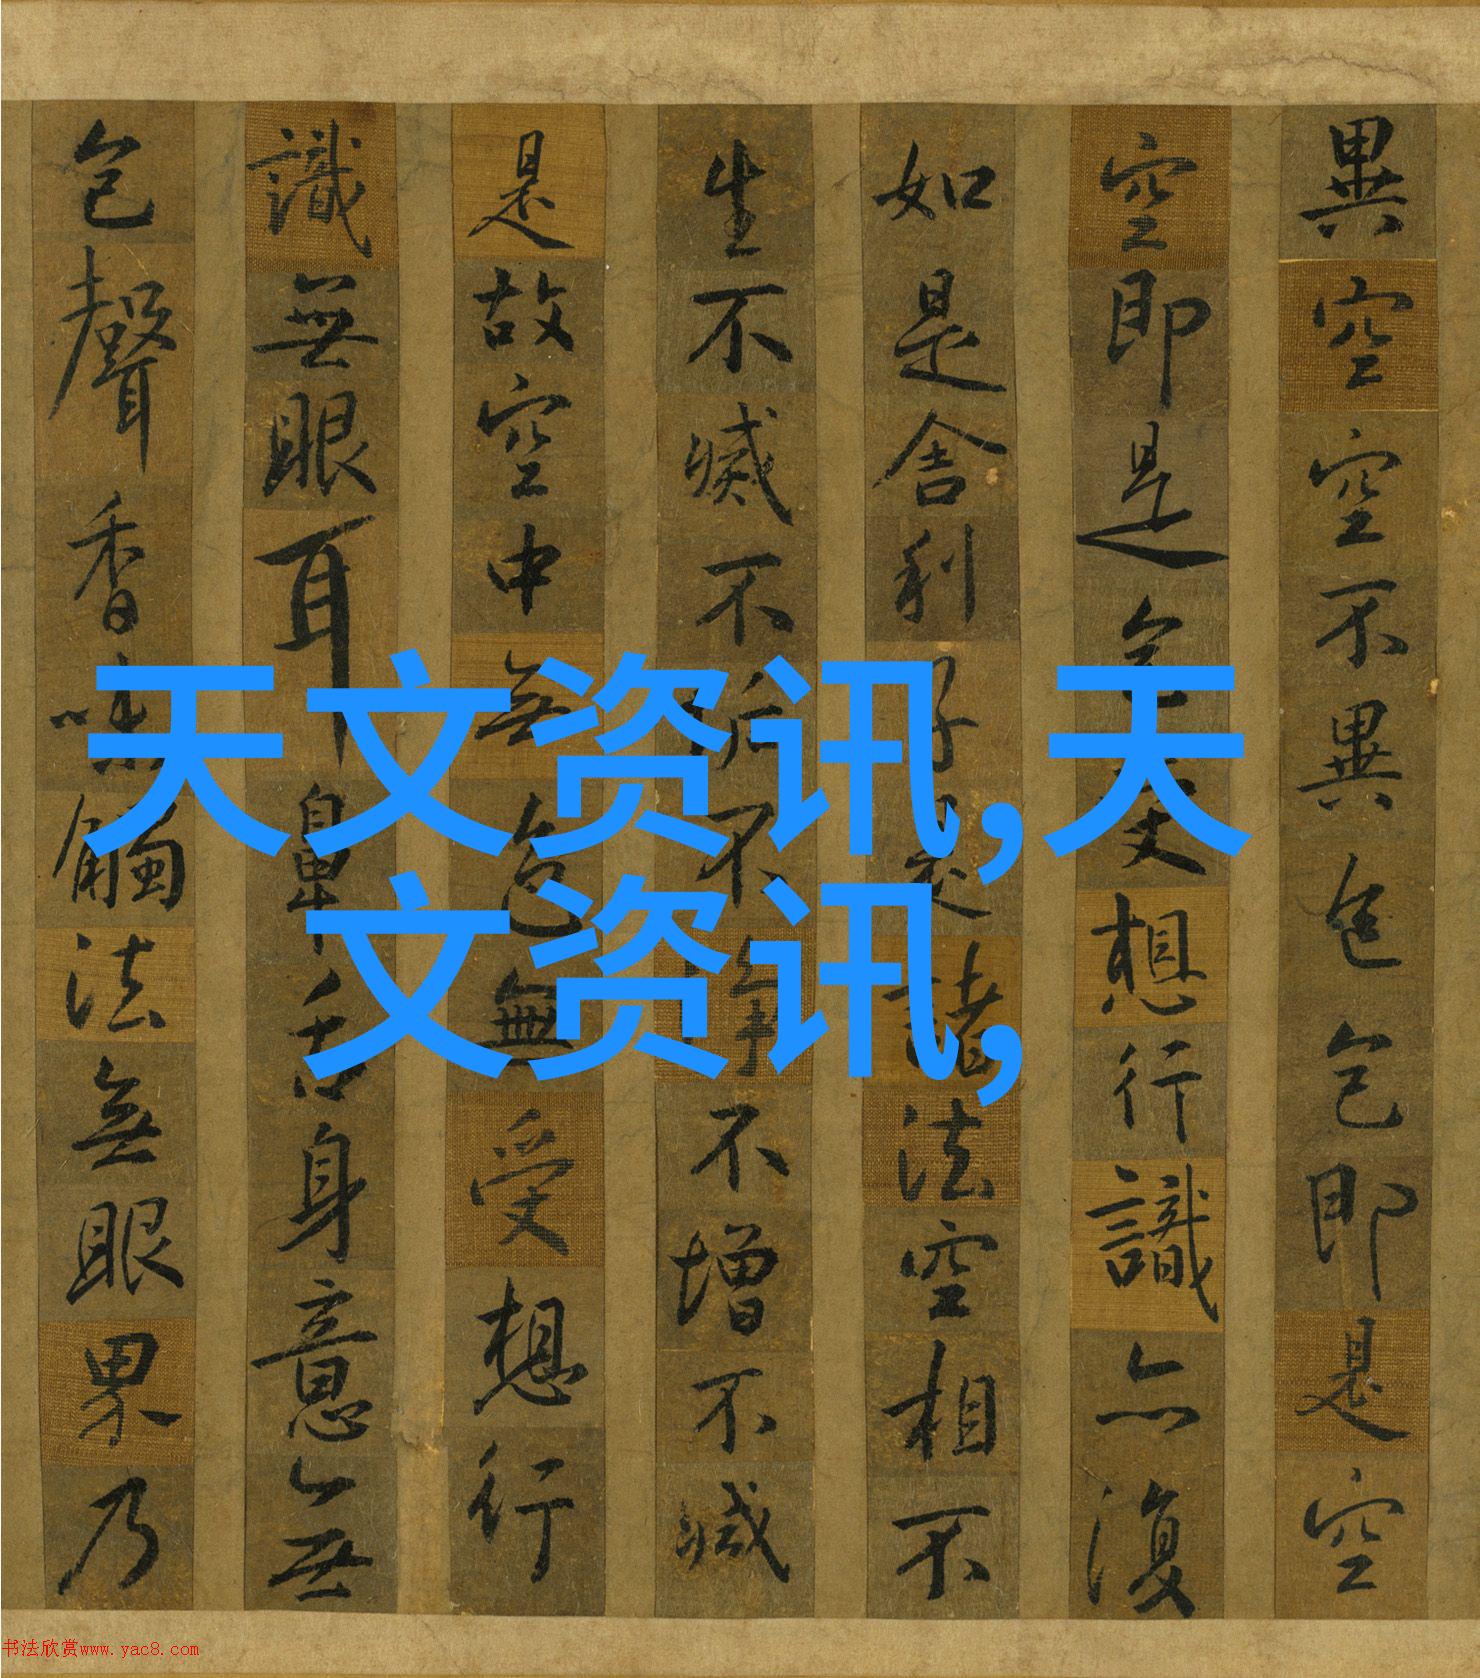 異空空不異色色即是空
空即是色受想行識亦復
如是舍利子是諸法空相不
生不滅不垢不淨不增不減
是故空中無色無受想行
識無眼耳鼻舌身意無
色聲香味觸法無眼界乃
天文资讯,天
文资讯,
书法欣赏www.yac8.com